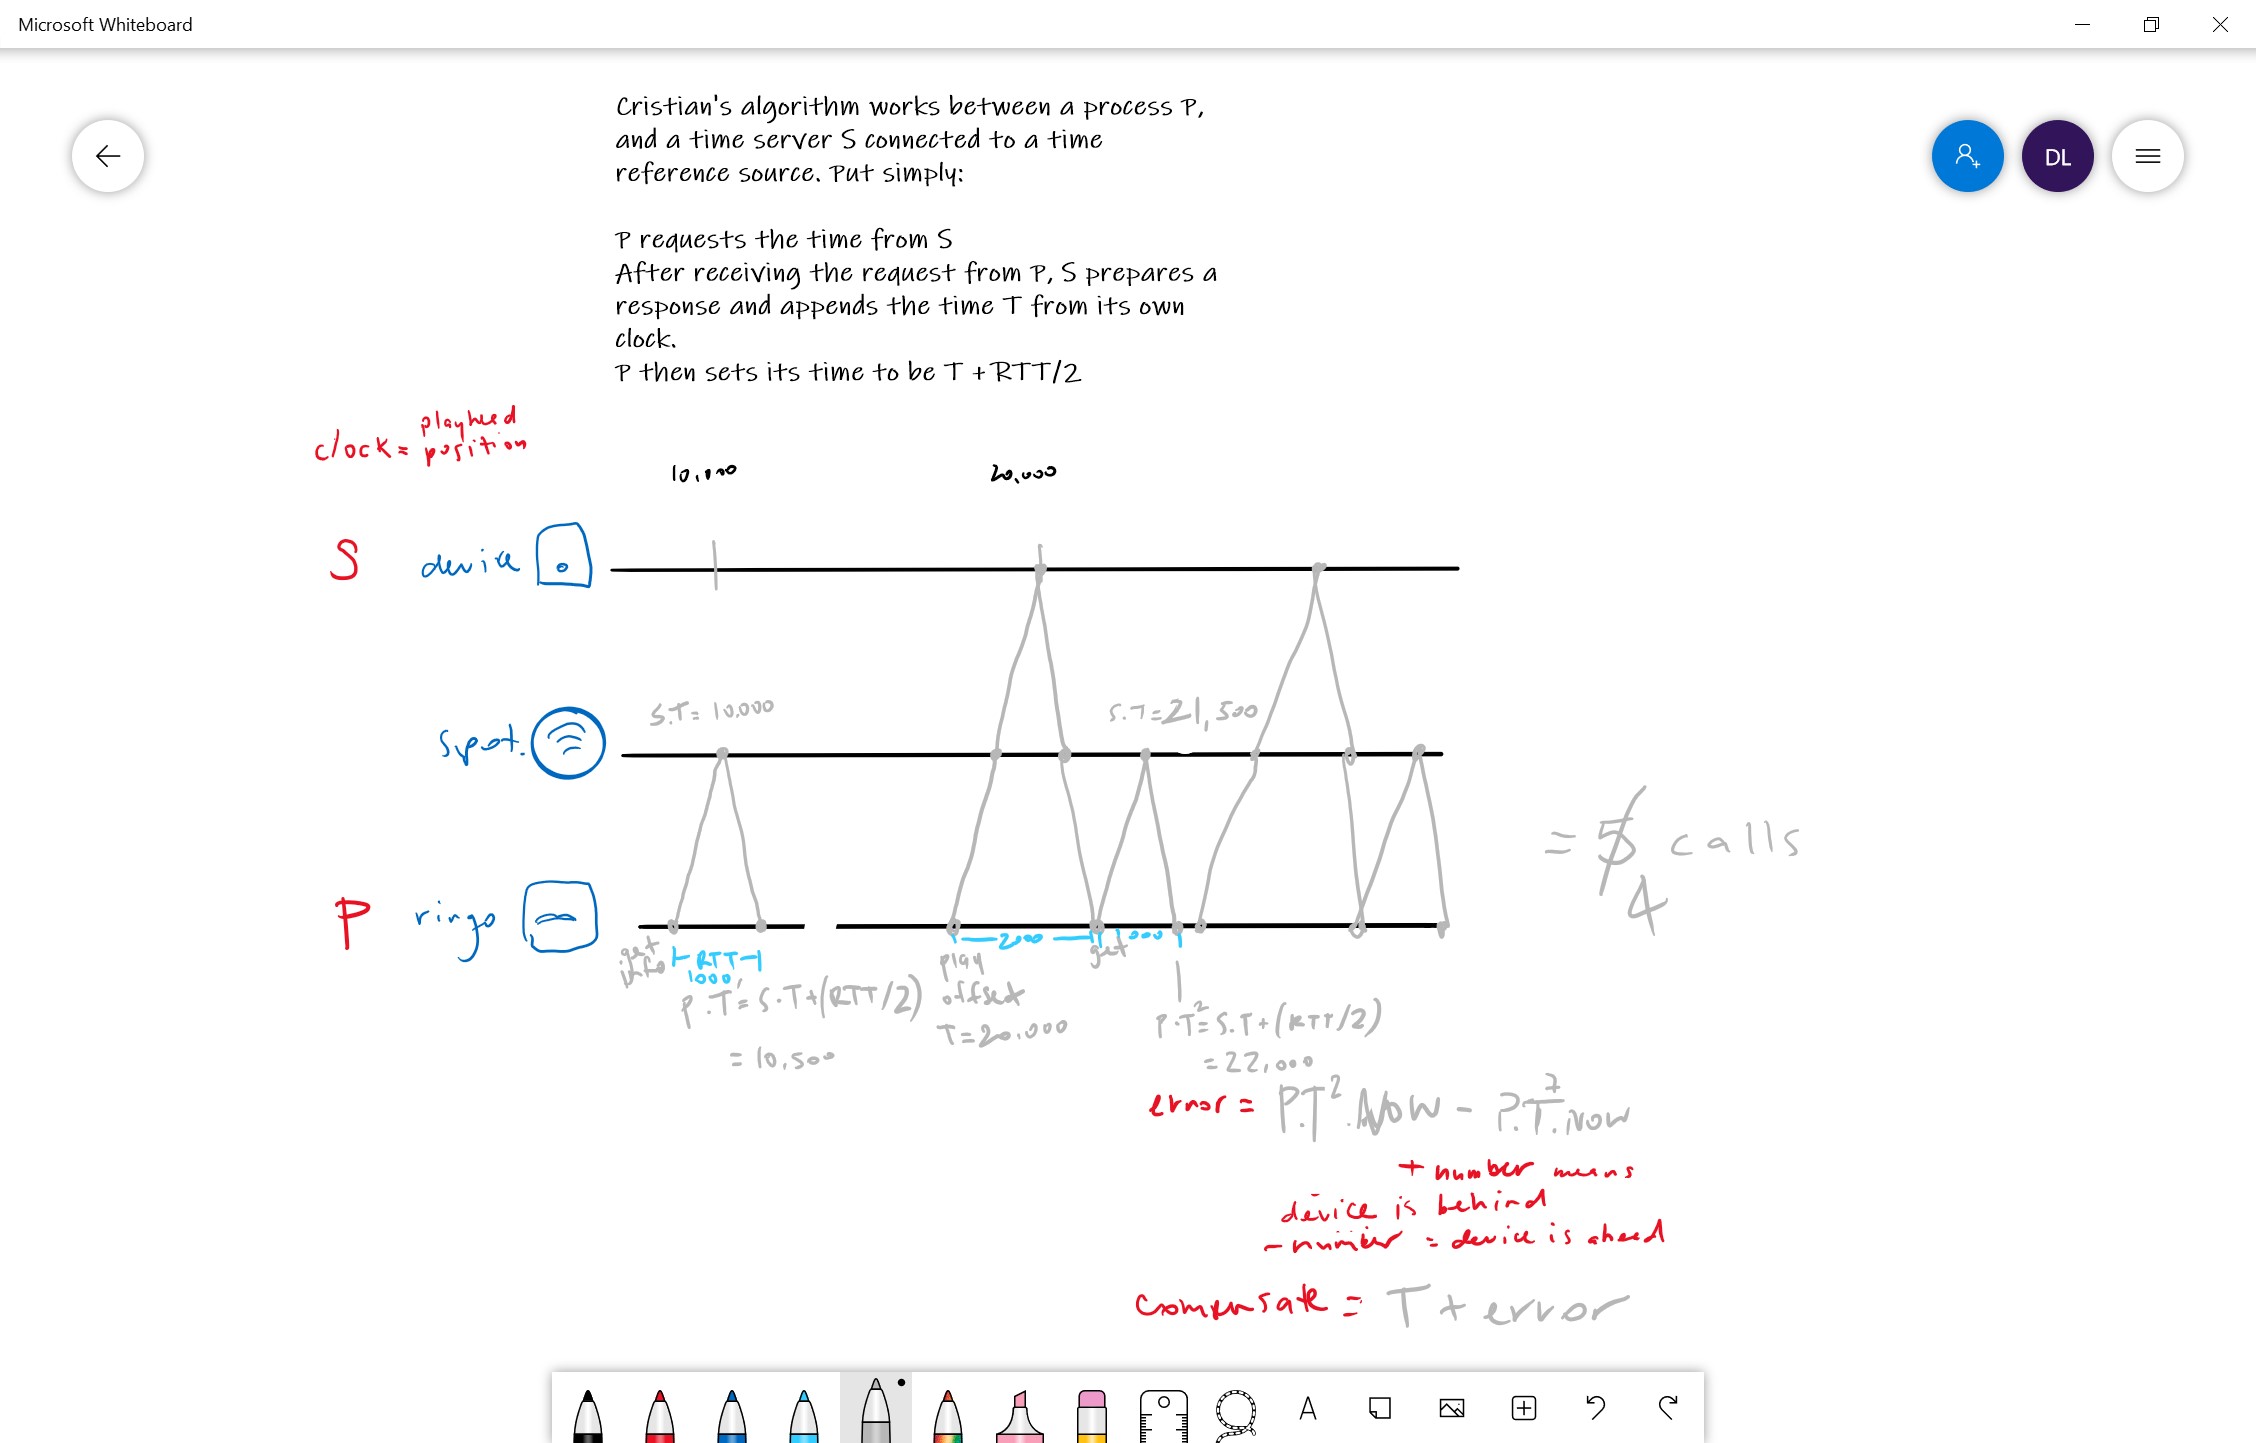 Microsoft Whiteboard
DL
Cristian's algorithm works between a process P,
and a time server S connected to a time
reference source. Put simply:
P requests the time from S
After receiving the request from P, S prepares a
response and appends the time T from its own
clock.
P then sets its time to be T + RTT/2
clock = playhead
position
10,000
20,000
S device
S.T = 10,000
S.T = 21,500
spot.
= 5 calls
4
P ringo
get
info
RTT
1000
2000
1000
get
play
offset
T = 20,000
P.T¹ = S.T + (RTT/2)
= 10,500
P.T² = S.T + (RTT/2)
= 22,000
error = P.T².NOW - P.T.NOW
+ number means
device is behind
- number = device is ahead
compensate = T + error
A